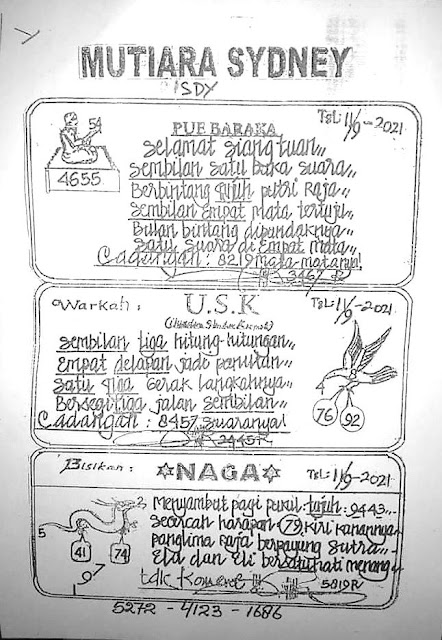 MUTIARA SYDNEY
SDY
PUE BARAKA
TGL: 11/9-2021
54
4655
Selamat siang tuan
Sembilan satu buka suara
Berbintang tujuh putri raja
Sembilan empat mata tertuju
Bulan bintang dipundaknya
Satu suara di empat mata
Cadangan: 8219 mata-matanya!
3467 R
Warkah:
U.S.K
TGL: 11/9-2021
Sembilan tiga hitung-hitungan
Empat delapan jadi
Satu tiga Gerak langkahnya
Bersegitiga jalan sembilan
Cadangan: 8457 suaranya!
2445 R
76 92
Bisikan:
NAGA
TGL: 11/9-2021
Menyambut pagi pukul: tujuh: 9443
secercah harapan 79 Kiri Kanannya
panglima raja berpayung sutra
Ela dan Eli bersatu hati menang
5
41
74
97
5819 R
5272 - 4123 - 1686